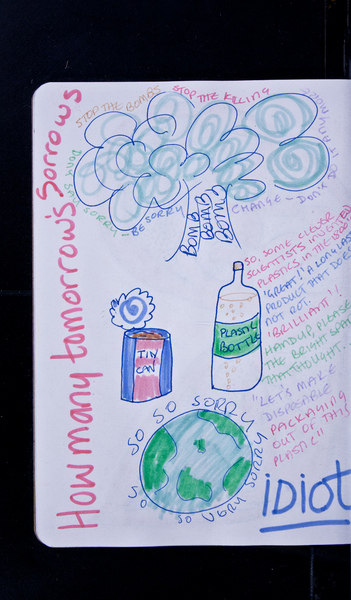 How many tomorrow's Sorrows
STOP THE BOMBS
STOP THE KILLING
BE SORRY
CHANGE - DON'T DO
IT ANYMORE
BOMB
BOMB
BOMB
SO, SOME CLEVER
SCIENTISTS INVENTED
PLASTICS IN THE
"GREAT! A LONG LAST
PRODUCT THAT DOES
NOT ROT.
'BRILLIANT'!
HANDUP, PLEASE
THE BRIGHT SPAR
THAT THOUGHT
"LET'S MAKE
DISPOSABLE
PACKAGING
OUT OF THIS
PLASTIC"
IDIOT
PLASTIC
BOTTLE
TIN
CAN
SO SO SO SORRY
SO SO VERY SORRY